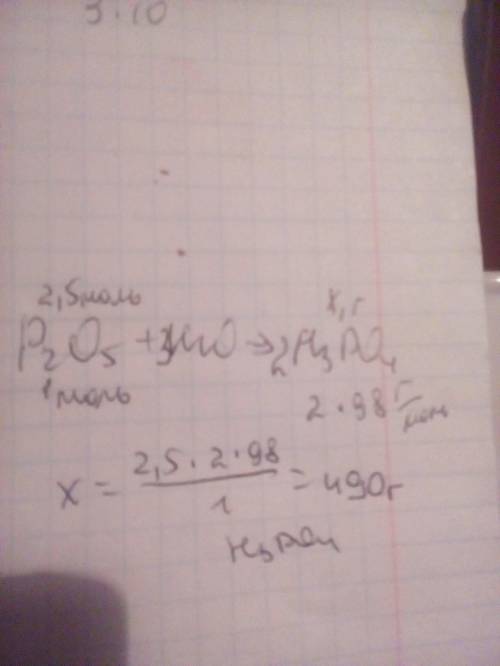 3.10
2,5 моль х, г
P2O5 + 3H2O → 2H3PO4
1 моль 2 · 98 г/моль
x = 2,5 · 2 · 98 / 1 = 490 г
H3PO4